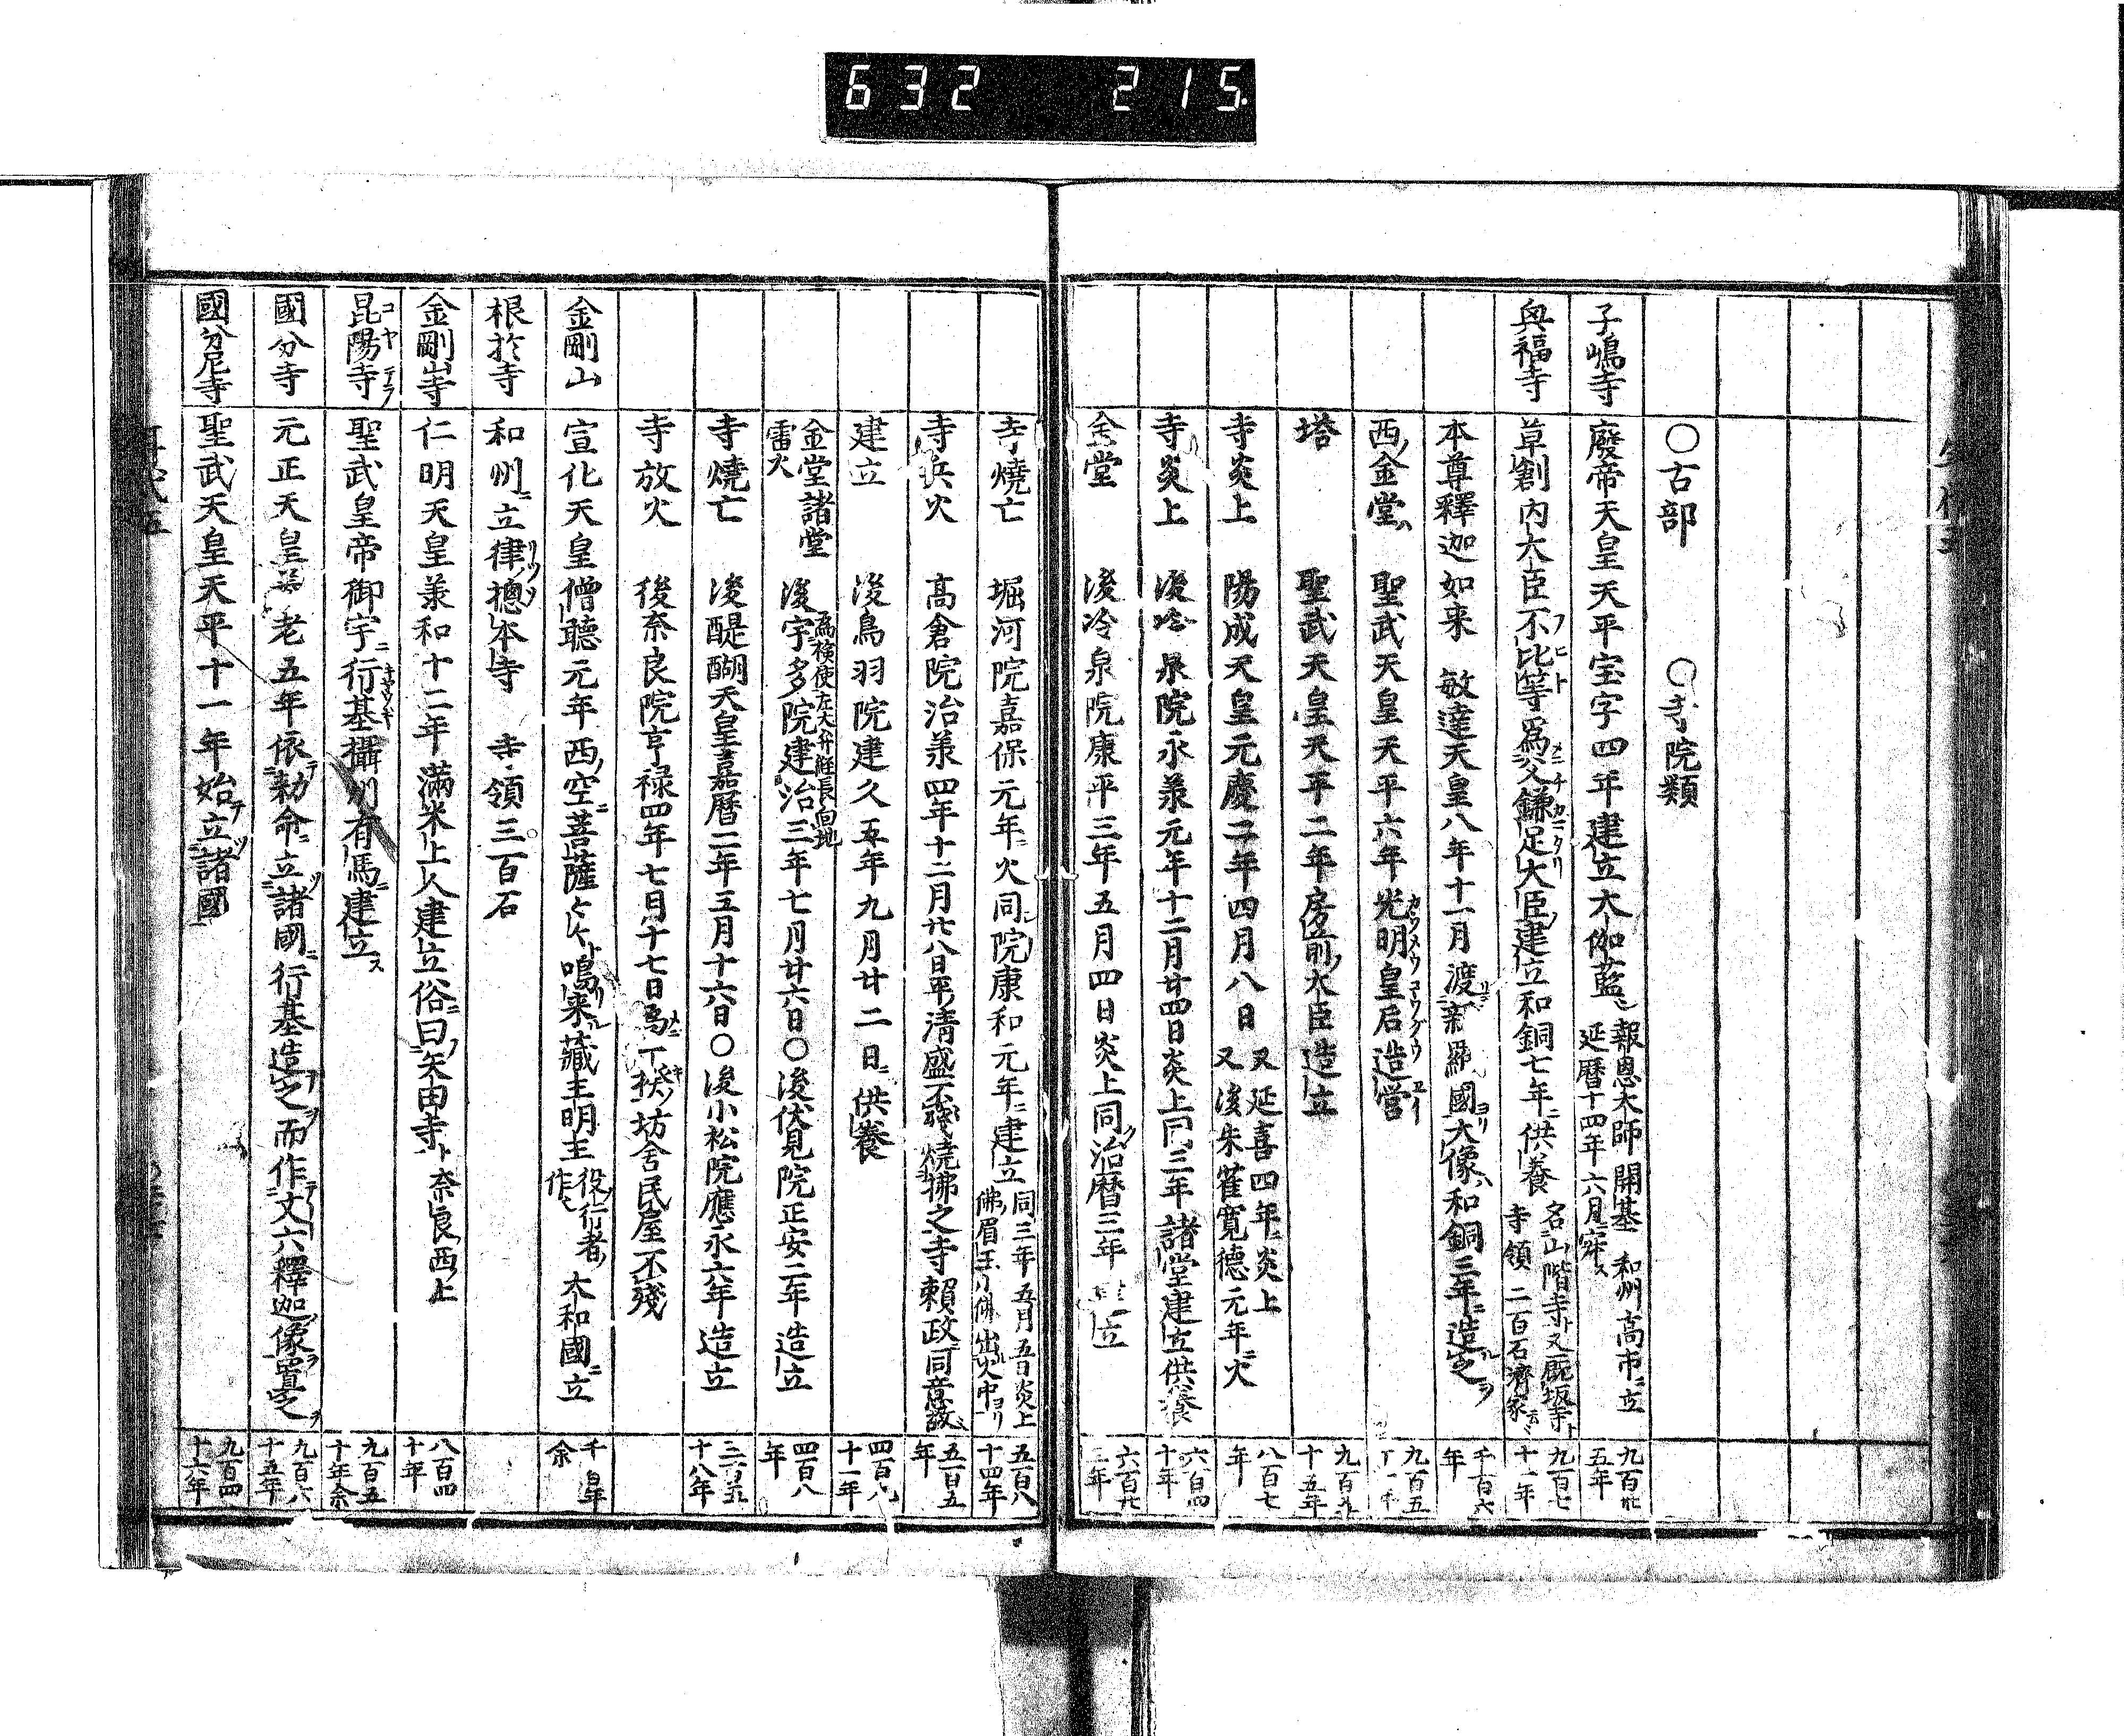 632 215.
○古部 ○寺院類
子嶋寺 廢帝天皇天平宝字四年建立大伽藍 報恩大師開基 和州高市ニ立 延暦十四年六月ニ寂ス 九百卅五年
興福寺 草創内大臣不比等爲父鎌足大臣建立和銅七年ニ供養 名山階寺ト又厩坂寺ト 寺領二百石 九百七十一年
本尊釋迦如来 敏達天皇八年十一月渡新羅國大像ハ和銅三年ニ造之 千百六年
西ノ金堂ハ 聖武天皇天平六年光明皇后造営 九百五
塔 聖武天皇天平二年房前大臣造立 九百 十五年
寺炎上 陽成天皇元慶二年四月八日 又延喜四年ニ炎上 又後朱雀寛徳元年ニ火 八百七年
寺炎上 後冷泉院永羕元年十二月廿四日炎上同三年諸堂建立供養 六百四十年
金堂 後冷泉院康平三年五月四日炎上同治暦三年 立 六百廿 年
寺焼亡 堀河院嘉保元年ニ火同院康和元年ニ建立 同三年五月五日炎上 佛眉 佛出火中ヨリ 五百八十四年
寺兵火 高倉院治羕四年十二月廿八日平清盛 焼拂之寺賴政同意故 五百五年
建立 後鳥羽院建久五年九月廿二日ニ供養 四百九十一年
金堂諸堂雷火 後宇多院建治三年七月廿六日○後伏見院正安二年造立 爲検使左大弁経長向地 四百八年
寺燒亡 後醍醐天皇嘉暦二年三月十六日○後小松院應永六年造立 三百五十八年
寺放火 後奈良院享禄四年七月十七日爲一揆坊舎民屋不殘
金剛山 宣化天皇僧聽元年西空ニ菩薩 ト鳴来藏主明主 役行者ノ作 大和國ニ立 千百年余
根於寺 和州ニ立律ノ摠本寺 寺領三百石
金剛山寺 仁明天皇羕和十二年滿米上人建立俗ニ曰矢田寺ト奈良西ノ上 八百四十年
昆陽寺 コヤテラ 聖武皇帝御宇ニ行基攝州有馬ニ建立ス 九百五十年余
國分寺 元正天皇養老五年依勅命ニ立諸國ニ行基造之而作丈六釋迦像置之 九百六十五年
國分尼寺 聖武天皇天平十一年始立諸國 九百四十六年